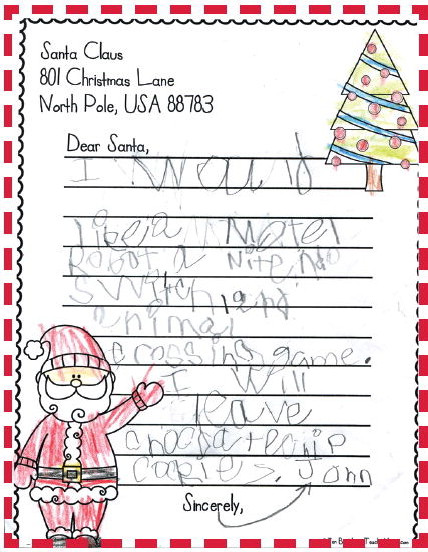 Santa Claus
801 Christmas Lane
North Pole, USA 88783
Dear Santa,
I Would
like a Matel
Robot a Nitendo
Switch and
animal
crossing game.
I Will
leave
chocolate chip
cookies. John
Sincerely,